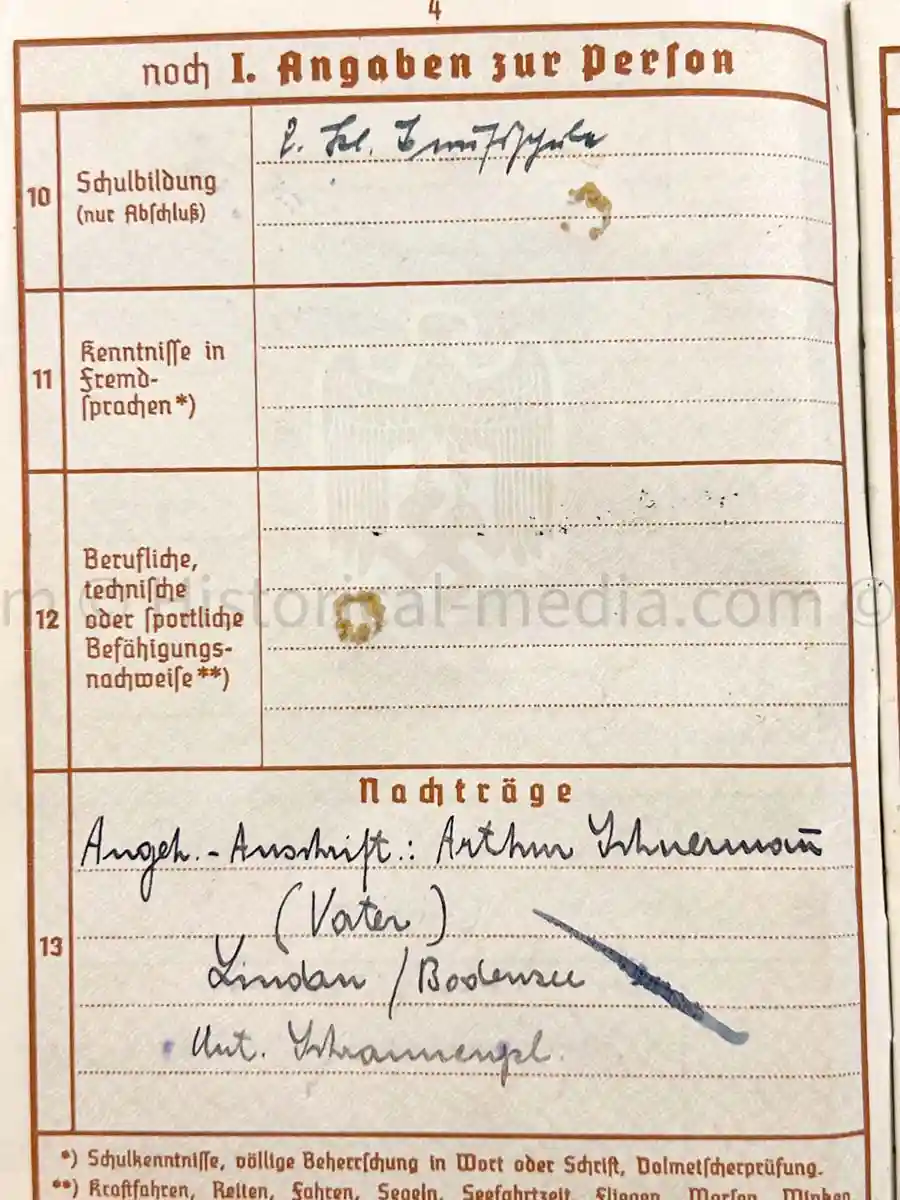 4
noch I. Angaben zur Person
10
Schulbildung
(nur Abschluß)
2. Kl. Berufsschule
11
Kenntnisse in
Fremd-
sprachen*)
12
Berufliche,
technische
oder sportliche
Befähigungs-
nachweise**)
m © Historical-media.com ©
Nachträge
13
Angeh.-Anschrift.: Arthur
(Vater)
Lindau / Bodensee
Unt. Schrannenpl.
*) Schulkenntnisse, völlige Beherrschung in Wort oder Schrift, Dolmetscherprüfung.
**) Kraftfahren, Reiten, Fahren, Segeln, Seefahrtzeit, Fliegen, Morsen, Winken